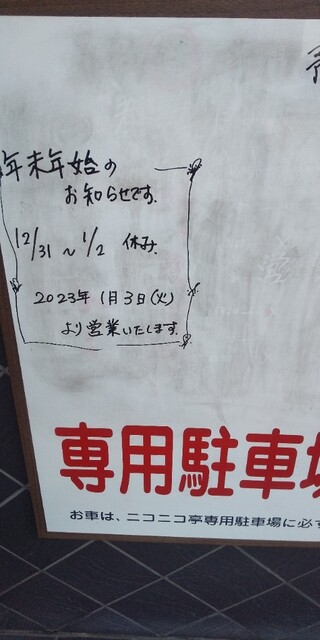 年末年始の
お知らせです.
12/31 ~ 1/2 休み.
2023年 1月3日(火)
より営業いたします.
専用駐車場
お車は、ニコニコ亭専用駐車場に必ず